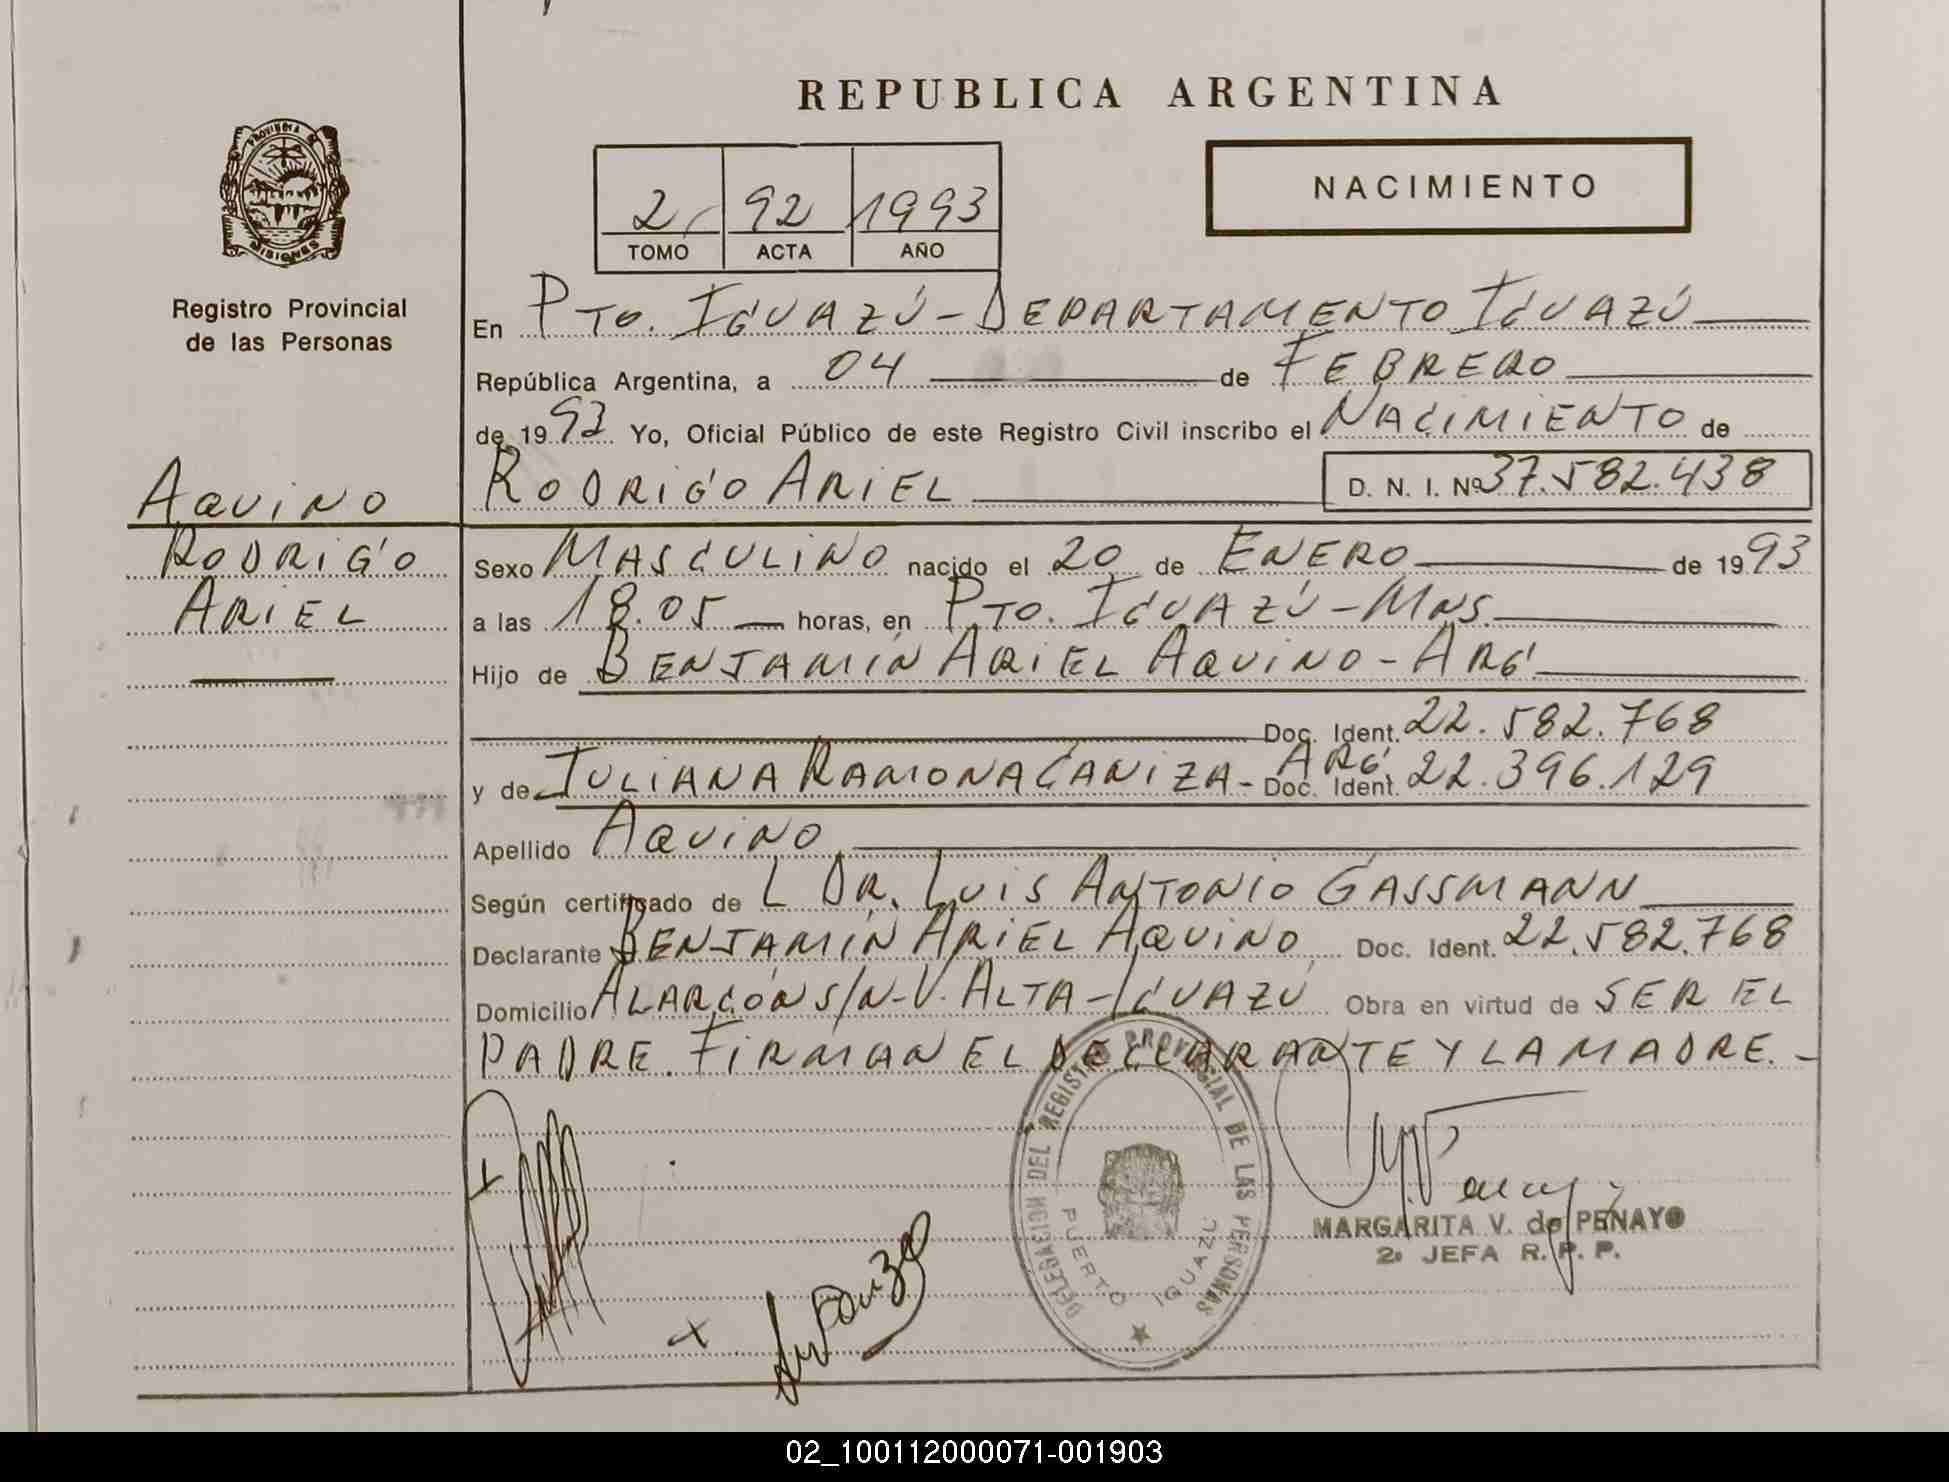 REPUBLICA ARGENTINA
PROVINCIA DE
MISIONES
Registro Provincial
de las Personas
2 92 1993
TOMO ACTA AÑO
NACIMIENTO
En PTO. IGUAZÚ - DEPARTAMENTO IGUAZÚ
República Argentina, a 04 de FEBRERO
de 1993 Yo, Oficial Público de este Registro Civil inscribo el NACIMIENTO de
AQUINO
RODRIGO ARIEL D. N. I. Nº 37.582.438
RODRIGO
ARIEL
Sexo MASCULINO nacido el 20 de ENERO de 1993
a las 18.05 horas, en PTO. IGUAZÚ - MNS.
Hijo de BENJAMÍN ARIEL AQUINO - ARG
Doc. Ident. 22.582.768
y de JULIANA RAMONA CANIZA - ARG Doc. Ident. 22.396.129
Apellido AQUINO
Según certificado de L DR. LUIS ANTONIO GASSMANN
Declarante BENJAMÍN ARIEL AQUINO Doc. Ident. 22.582.768
Domicilio ALARCÓN S/N - V. ALTA - IGUAZÚ Obra en virtud de SER EL
PADRE. FIRMAN EL DECLARANTE Y LA MADRE. -
DELEGACION DEL REGISTRO PROVINCIAL DE LAS PERSONAS
PUERTO IGUAZU
MARGARITA V. de PENAYO
2º JEFA R. P. P.
02_100112000071-001903